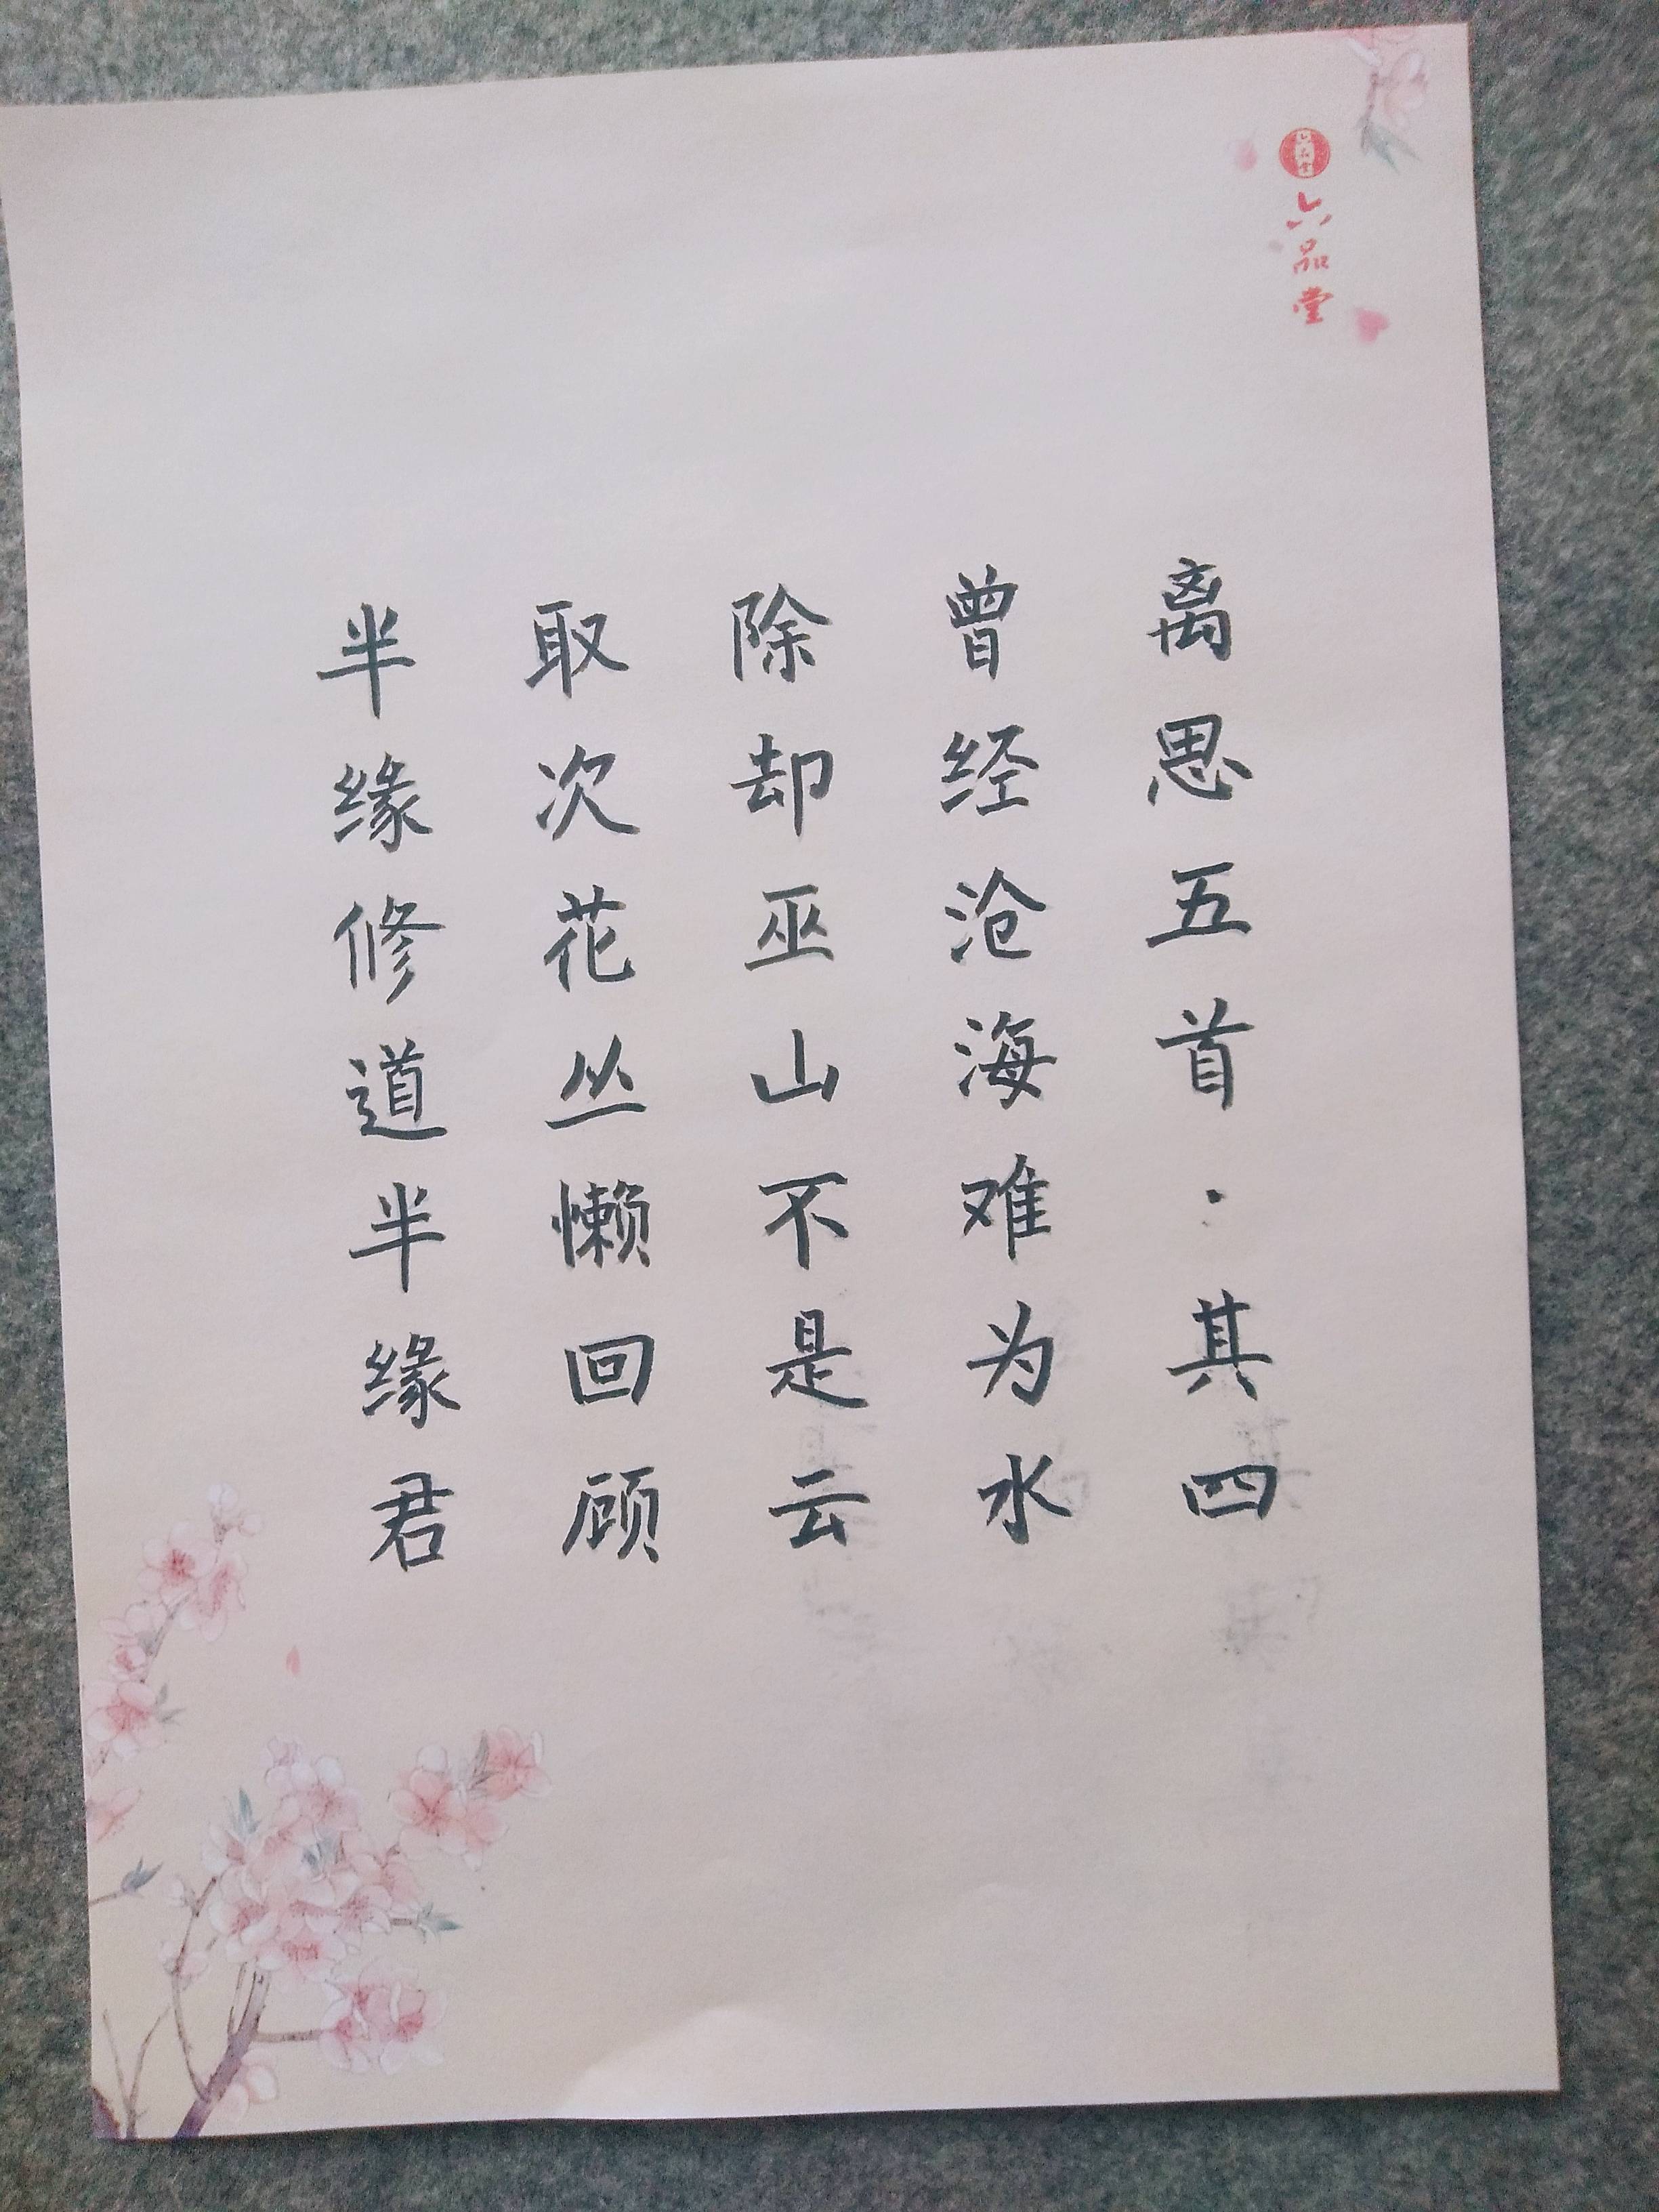 六品堂
离思五首·其四
曾经沧海难为水
除却巫山不是云
取次花丛懒回顾
半缘修道半缘君